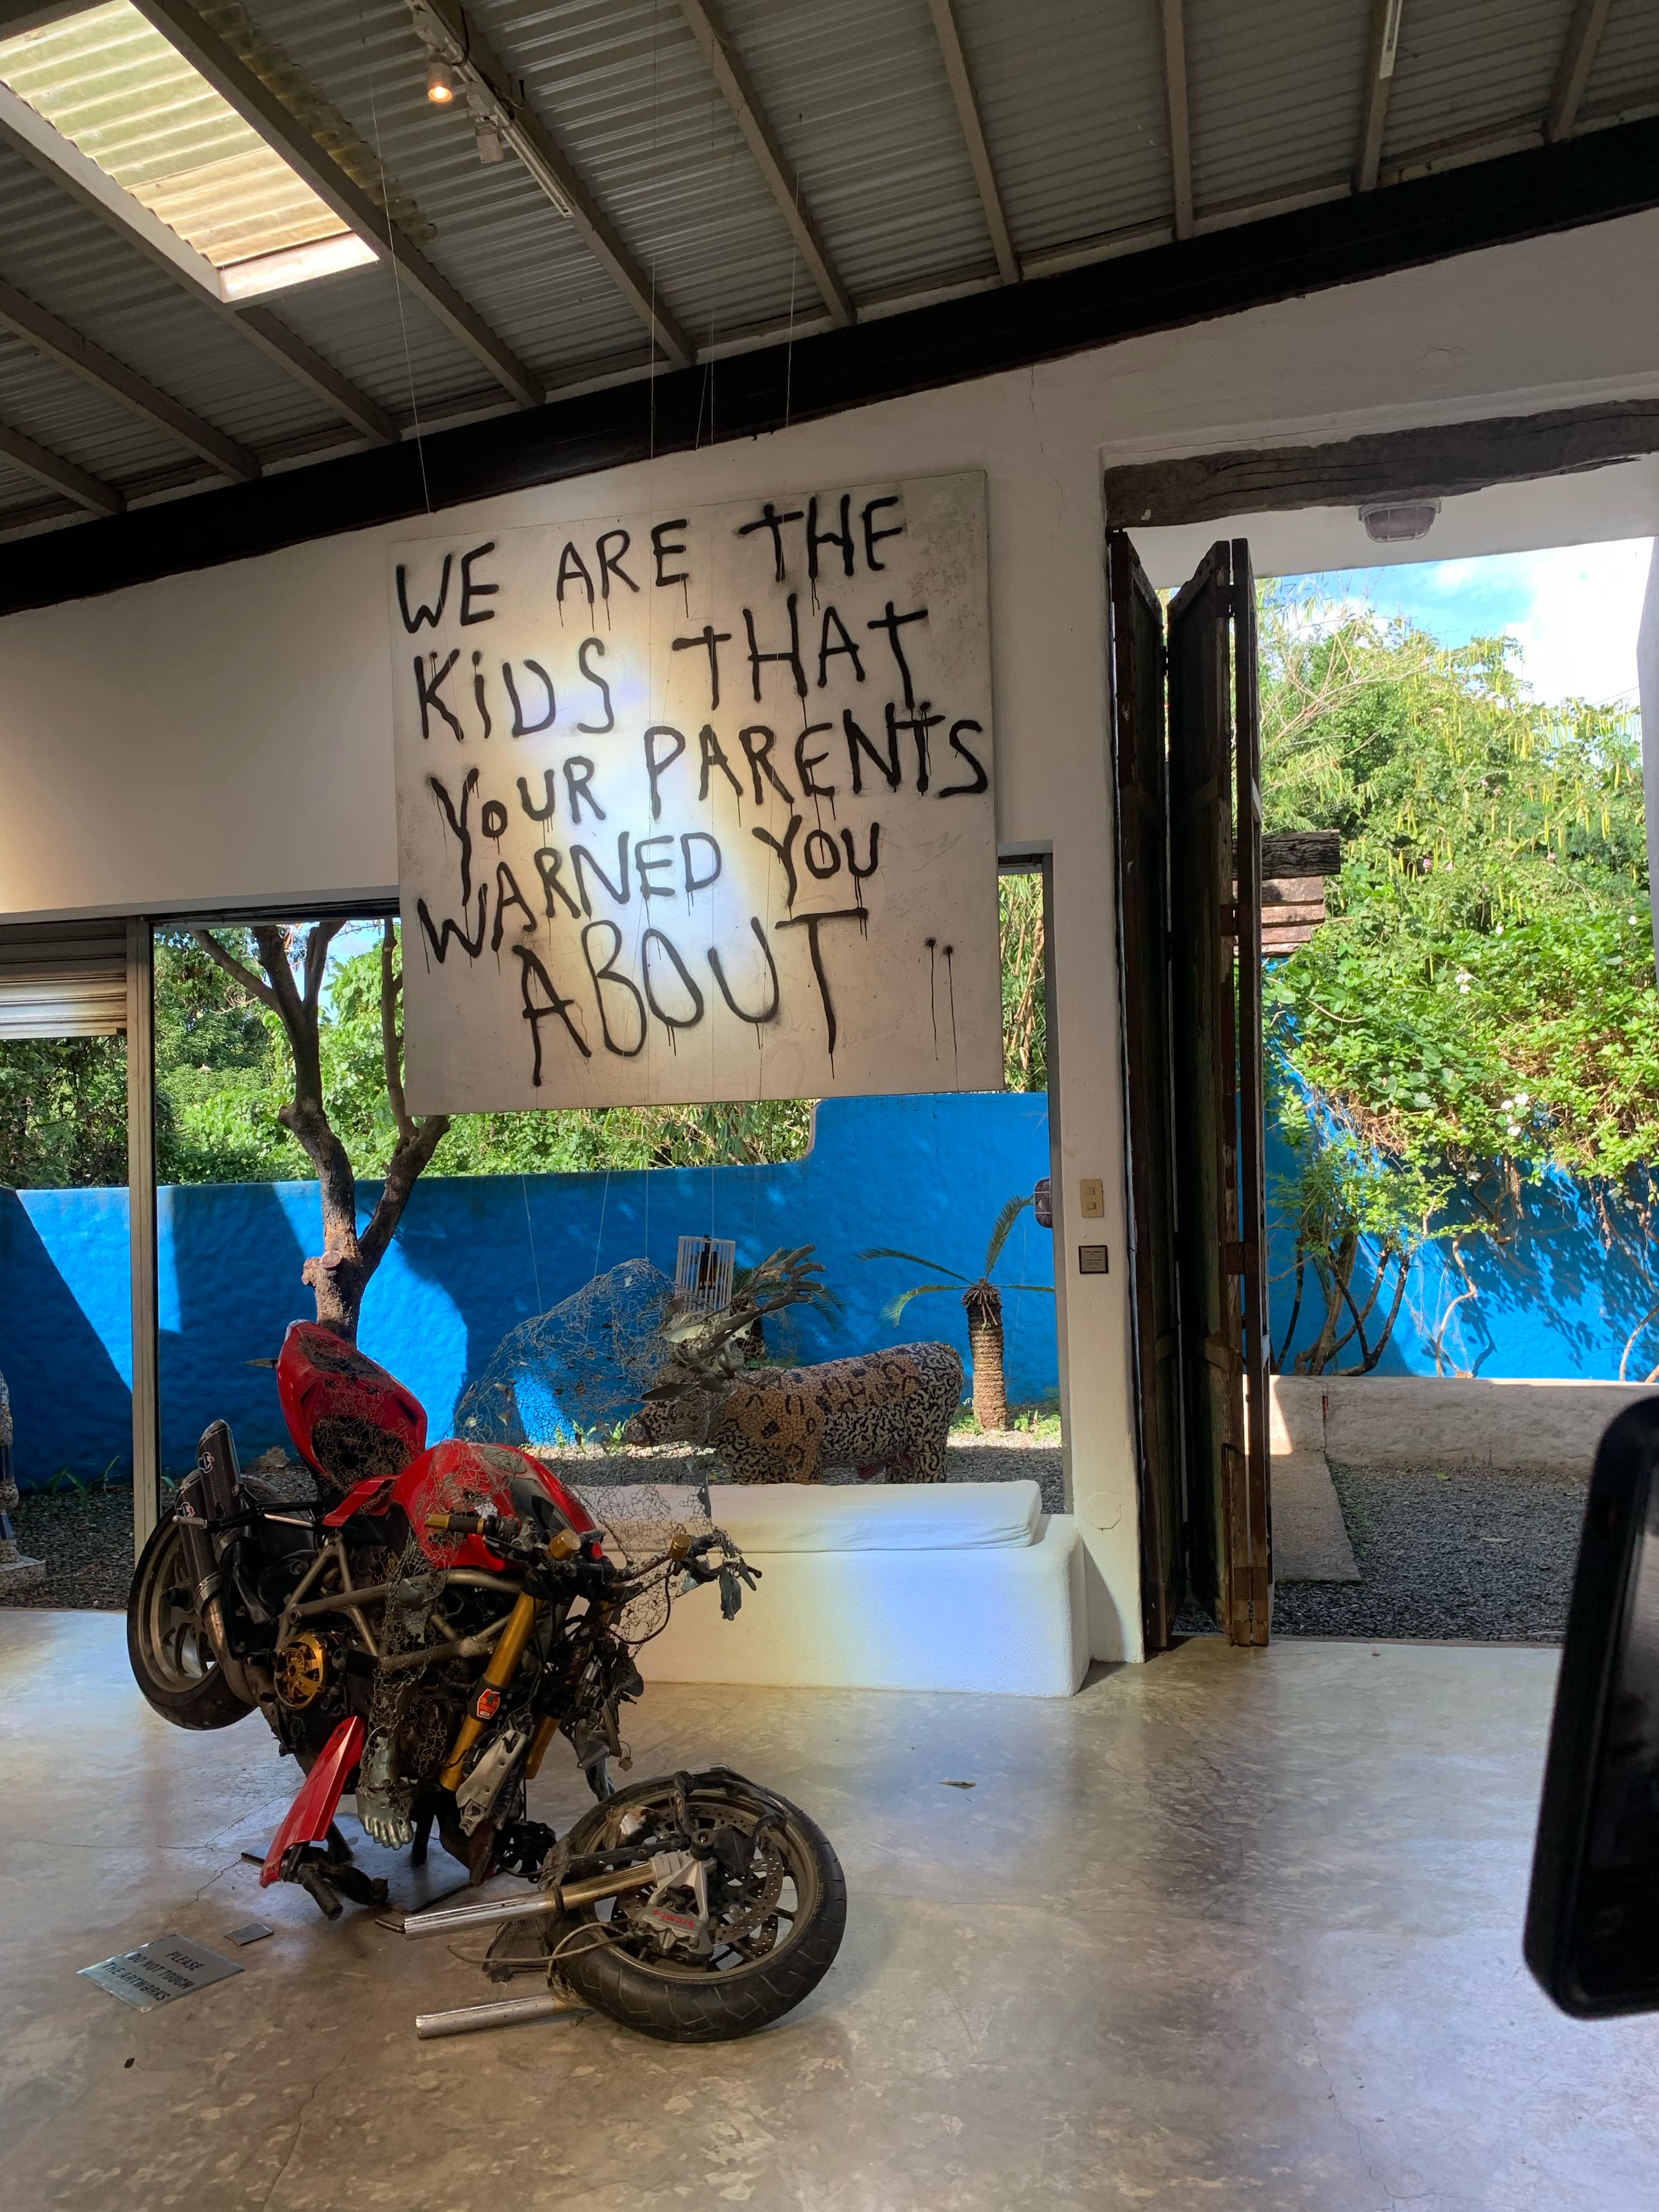 WE ARE THE
KiDS THAT
YoUR PARENTS
WARNED YOU
ABOUT ..
PLEASE
DO NOT TOUCH
THE ARTWORKS
brembo